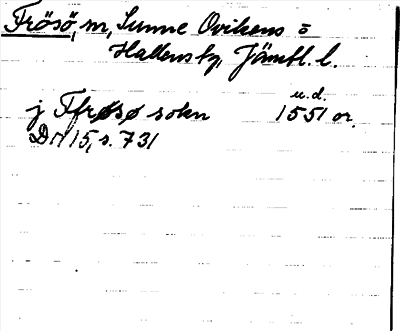 Frösö, m, Sunne Ovikens o
Hallens tg, Jämtl. l.
u.d.
j Ffrøsø sokn 1551 or.
DN 15, s. 731